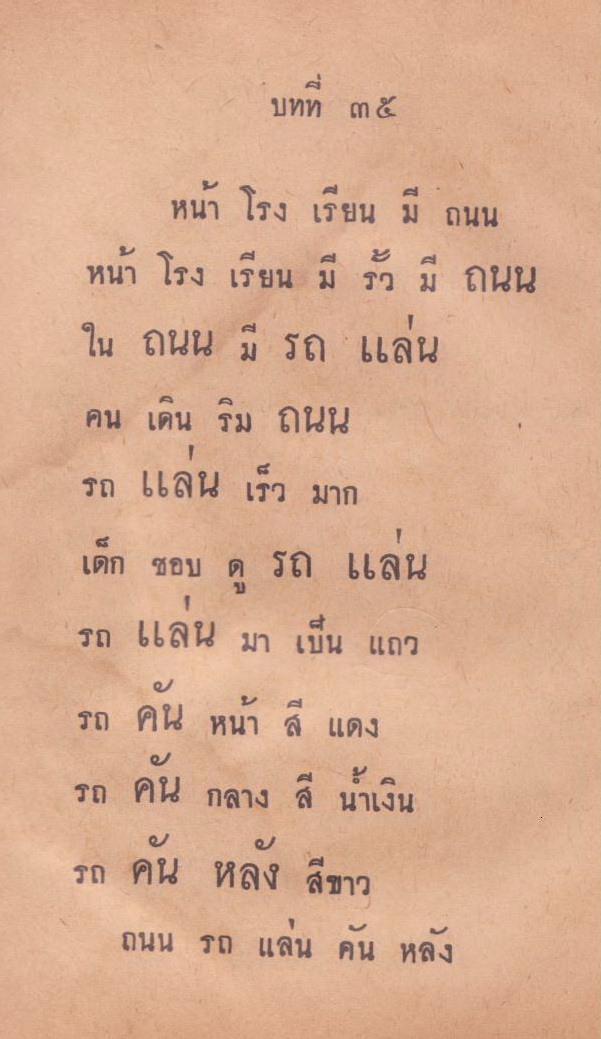 บทที่ ๓๕
หน้า โรง เรียน มี ถนน
หน้า โรง เรียน มี รั้ว มี ถนน
ใน ถนน มี รถ แล่น
คน เดิน ริม ถนน
รถ แล่น เร็ว มาก
เด็ก ชอบ ดู รถ แล่น
รถ แล่น มา เป็น แถว
รถ คัน หน้า สี แดง
รถ คัน กลาง สี น้ำเงิน
รถ คัน หลัง สีขาว
ถนน รถ แล่น คัน หลัง